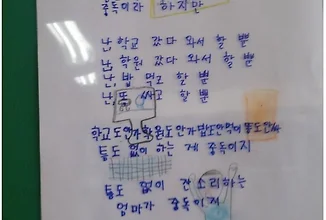 중독이라 하지만
난, 학교 갔다 와서 할 뿐
난, 학원 갔다 와서 할 뿐
난, 밥 먹고 할 뿐
난, 똥 싸고 할 뿐
학교도안가학원도안가밥도안먹어똥도안싸
틈도 없이 하는 게 중독이지
틈도 없이 잔소리하는
엄마가 중독이지